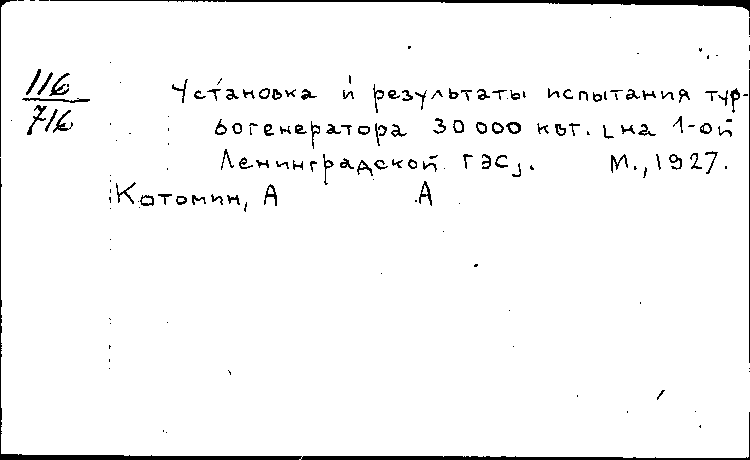 116
716
Установка и результаты испытания тур-
богенератора 30 000 квт. [на 1-ой
Ленинградской ГЭС].   М., 1927.
Котомин, А   А